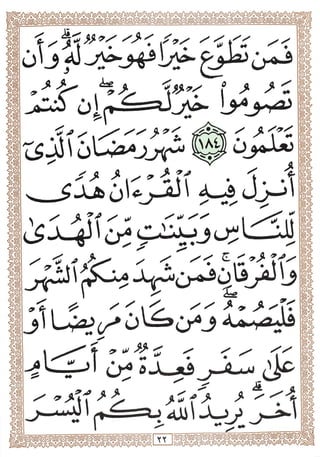 فَمَن تَطَوَّعَ خَيْرًا فَهُوَ خَيْرٌ لَّهُۥ ۚ وَأَن
تَصُومُوا۟ خَيْرٌ لَّكُمْ ۖ إِن كُنتُمْ
تَعْلَمُونَ ١٨٤ شَهْرُ رَمَضَانَ ٱلَّذِىٓ
أُنزِلَ فِيهِ ٱلْقُرْءَانُ هُدًى
لِّلنَّاسِ وَبَيِّنَـٰتٍ مِّنَ ٱلْهُدَىٰ
وَٱلْفُرْقَانِ ۚ فَمَن شَهِدَ مِنكُمُ ٱلشَّهْرَ
فَلْيَصُمْهُ ۖ وَمَن كَانَ مَرِيضًا أَوْ
عَلَىٰ سَفَرٍ فَعِدَّةٌ مِّنْ أَيَّامٍ
أُخَرَ ۗ يُرِيدُ ٱللَّهُ بِكُمُ ٱلْيُسْرَ
٢٢